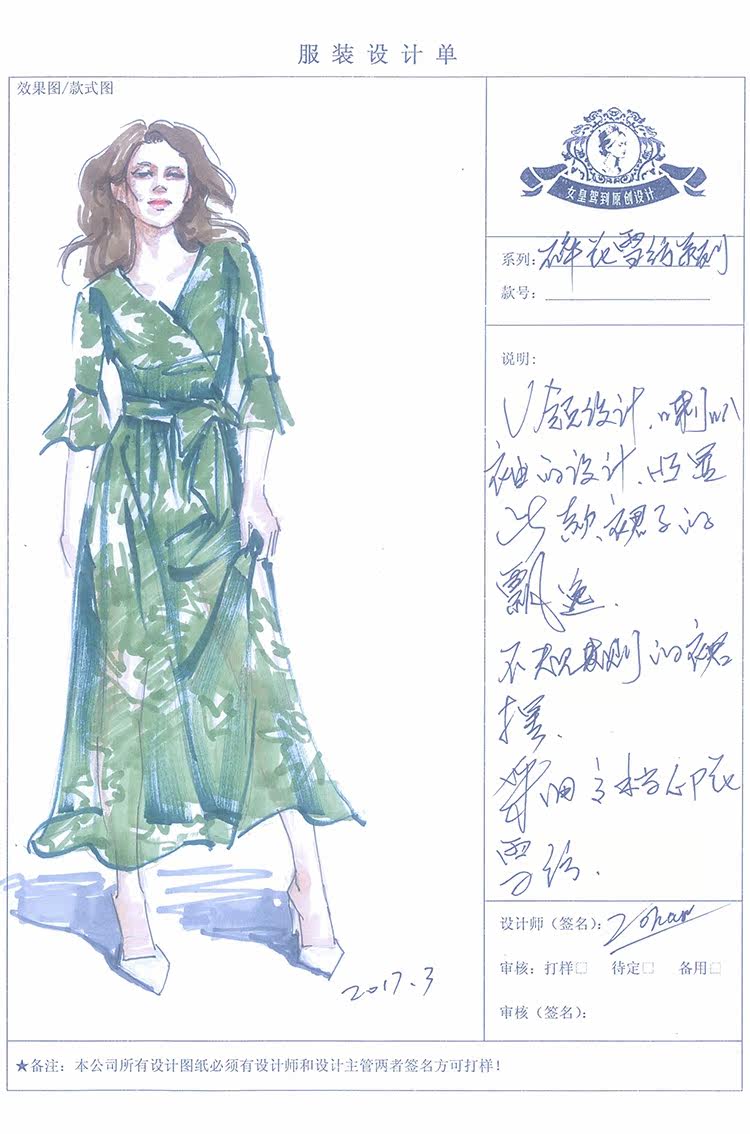 服装设计单
效果图/款式图
女皇驾到原创设计
系列:碎花雪纺系列
款号:
说明:
V领设计、喇叭
袖的设计、凸显
此款裙子的
飘逸.
不规则的裙
摆、
采用高档印花
雪纺.
设计师（签名）: Zohar
审核: 打样□ 待定□ 备用□
审核（签名）:
2017.3
★备注: 本公司所有设计图纸必须有设计师和设计主管两者签名方可打样!